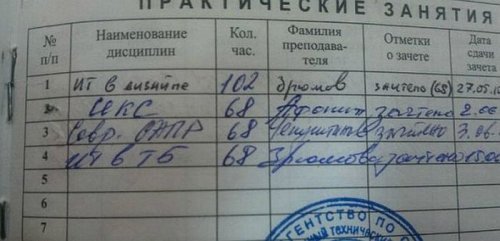 ПРАКТИЧЕСКИЕ ЗАНЯТИЯ
№ п/п Наименование дисциплин Кол. час. Фамилия преподава- теля Отметки о зачете Дата сдачи зачета
1 ИТ в дизайне 102 зачтено (68) 27.05
2 ИКС 68 зачтено 2.06
3 Совр. 68 зачтено 3.06
4 ИТ в ТБ 68 зачтено
5
6
7
АГЕНТСТВО ПО